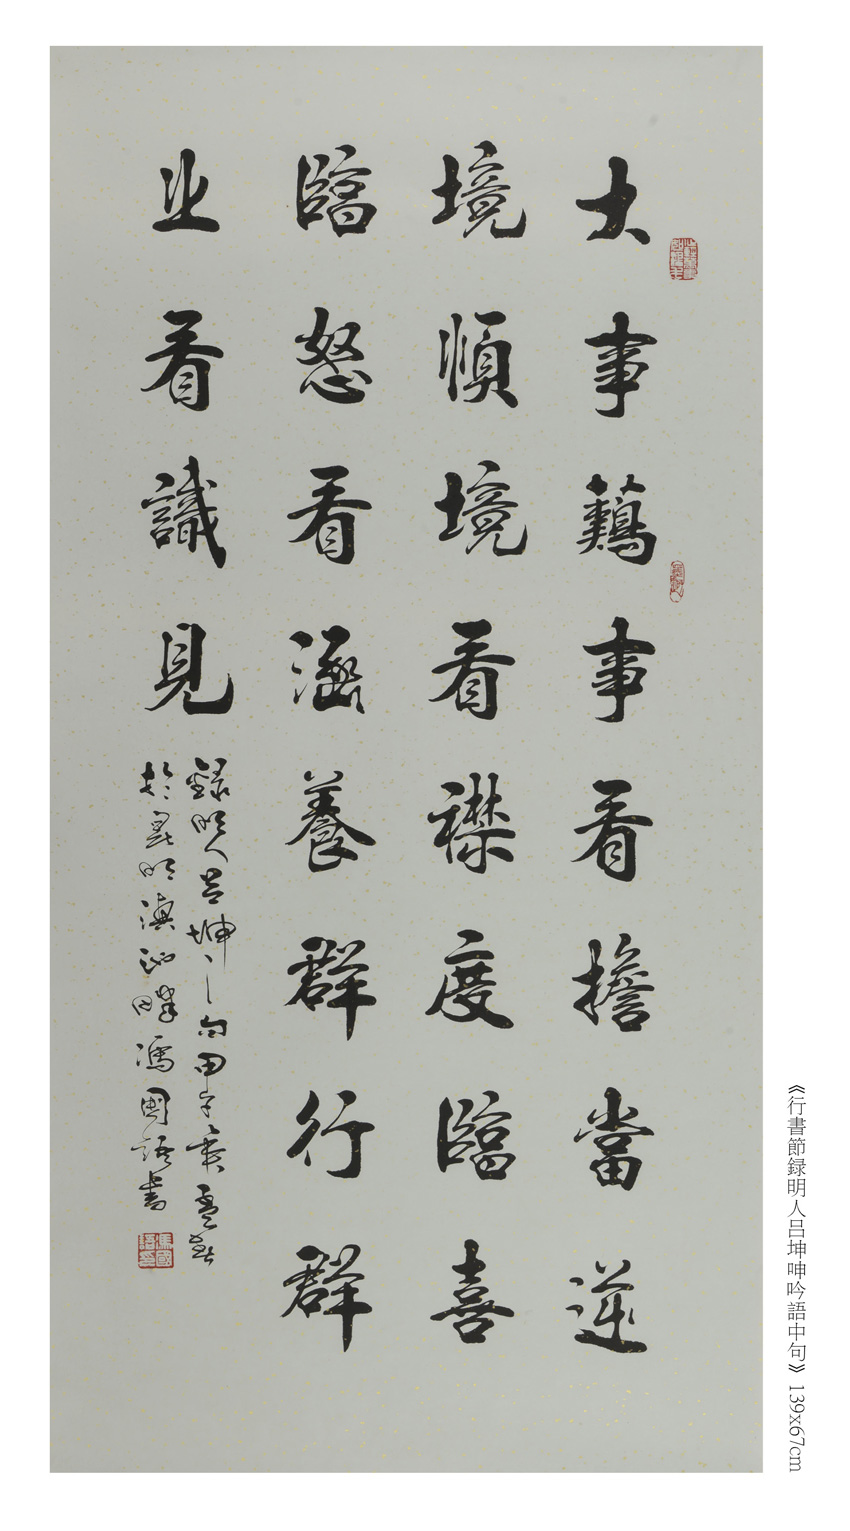 大事難事看擔當逆
境順境看襟度臨喜
臨怒看涵養群行群
止看識見
錄明人呂坤之句甲午
於昆明滇池畔馮國語書
馮國語印
《行書節録明人吕坤呻吟語中句》139x67cm